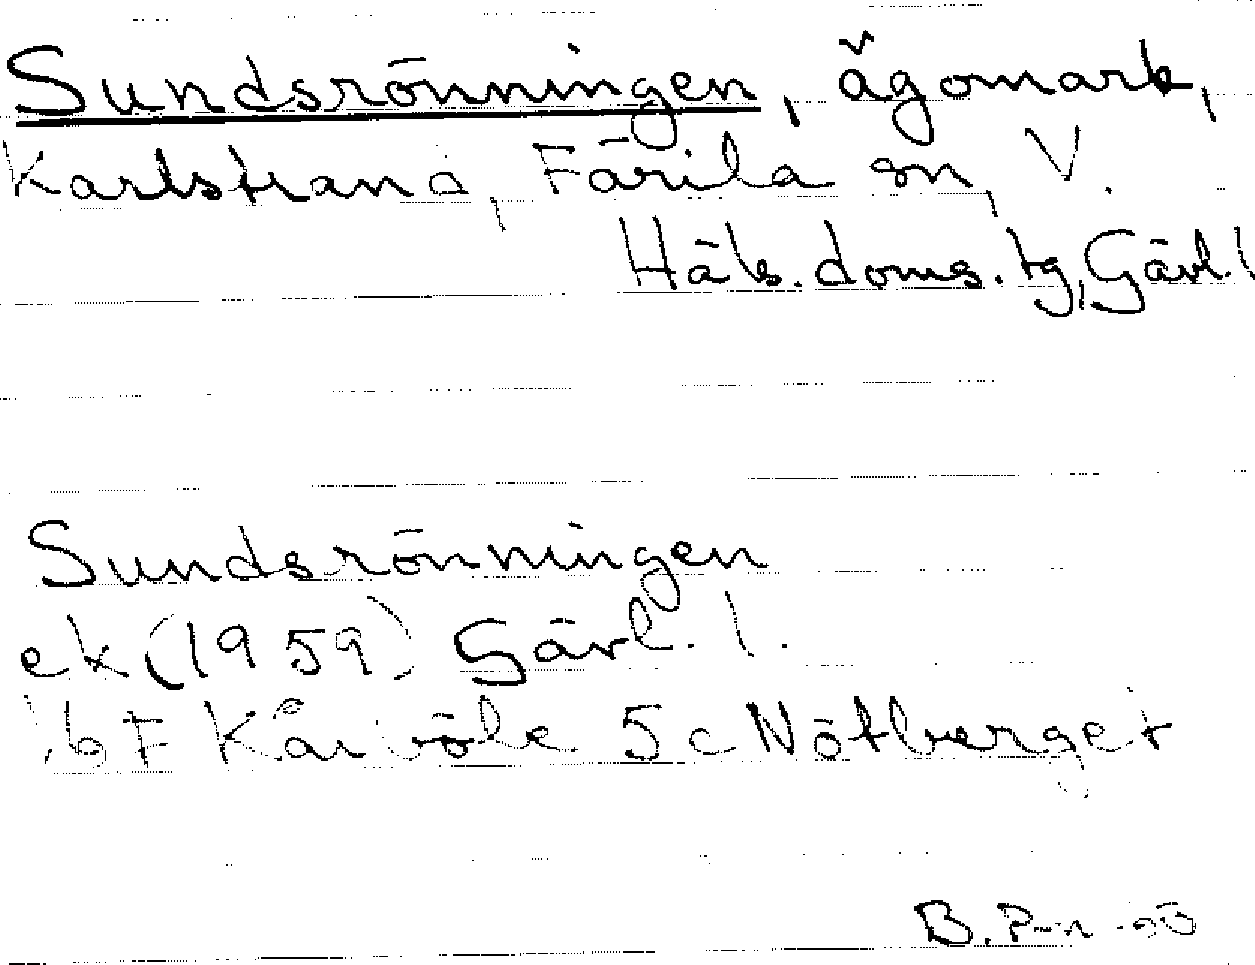 Sundsrönningen, ägomark,
Karlstrand, Färila sn, V.
Häls. doms. tg, Gävl. l
Sundsrönningen
ek (1959) Gävl. l.
16 F Kårböle 5c Nötberget
B. P-n